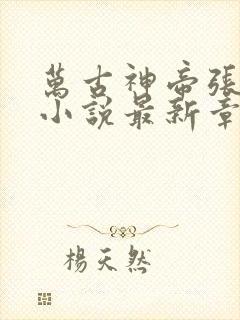 萬古神帝張
小說最新章
楊天然